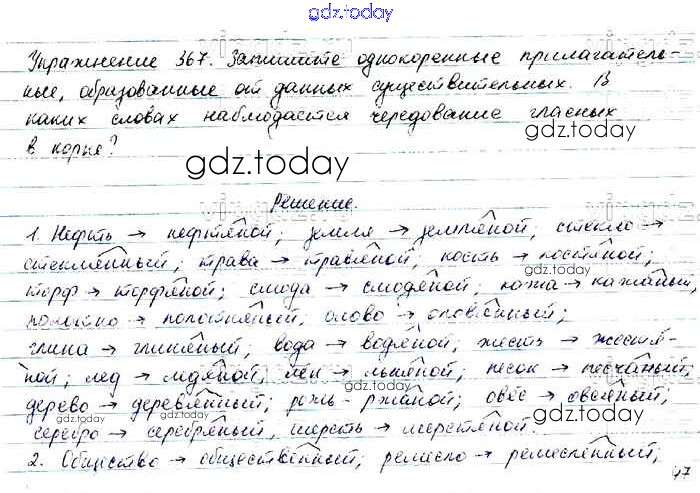 gdz.today
Упражнение 367. Запишите однокоренные прилагатель-
ные, образованные от данных существительных. В
каких словах наблюдается чередование гласных
в корне?
gdz.today
Решение.
1. Нефть → нефтяной; земля → земляной; стекло →
стеклянный; трава → травяной; кость → костяной;
gdz.today
торф → торфяной; смола → смоляной; кожа → кожаный,
полотно → полотняный; олово → оловянный;
gdz.today
глина → глиняный; вода → водяной; жесть → жестя-
ной; лед → ледяной; лён → льняной; песок → песчаный;
gdz.today
дерево → деревянный; рожь - ржаной; овёс → овсяный;
gdz.today
серебро → серебряный, шерсть → шерстяной.
2. Общество → общественный; ремесло → ремесленный;
47